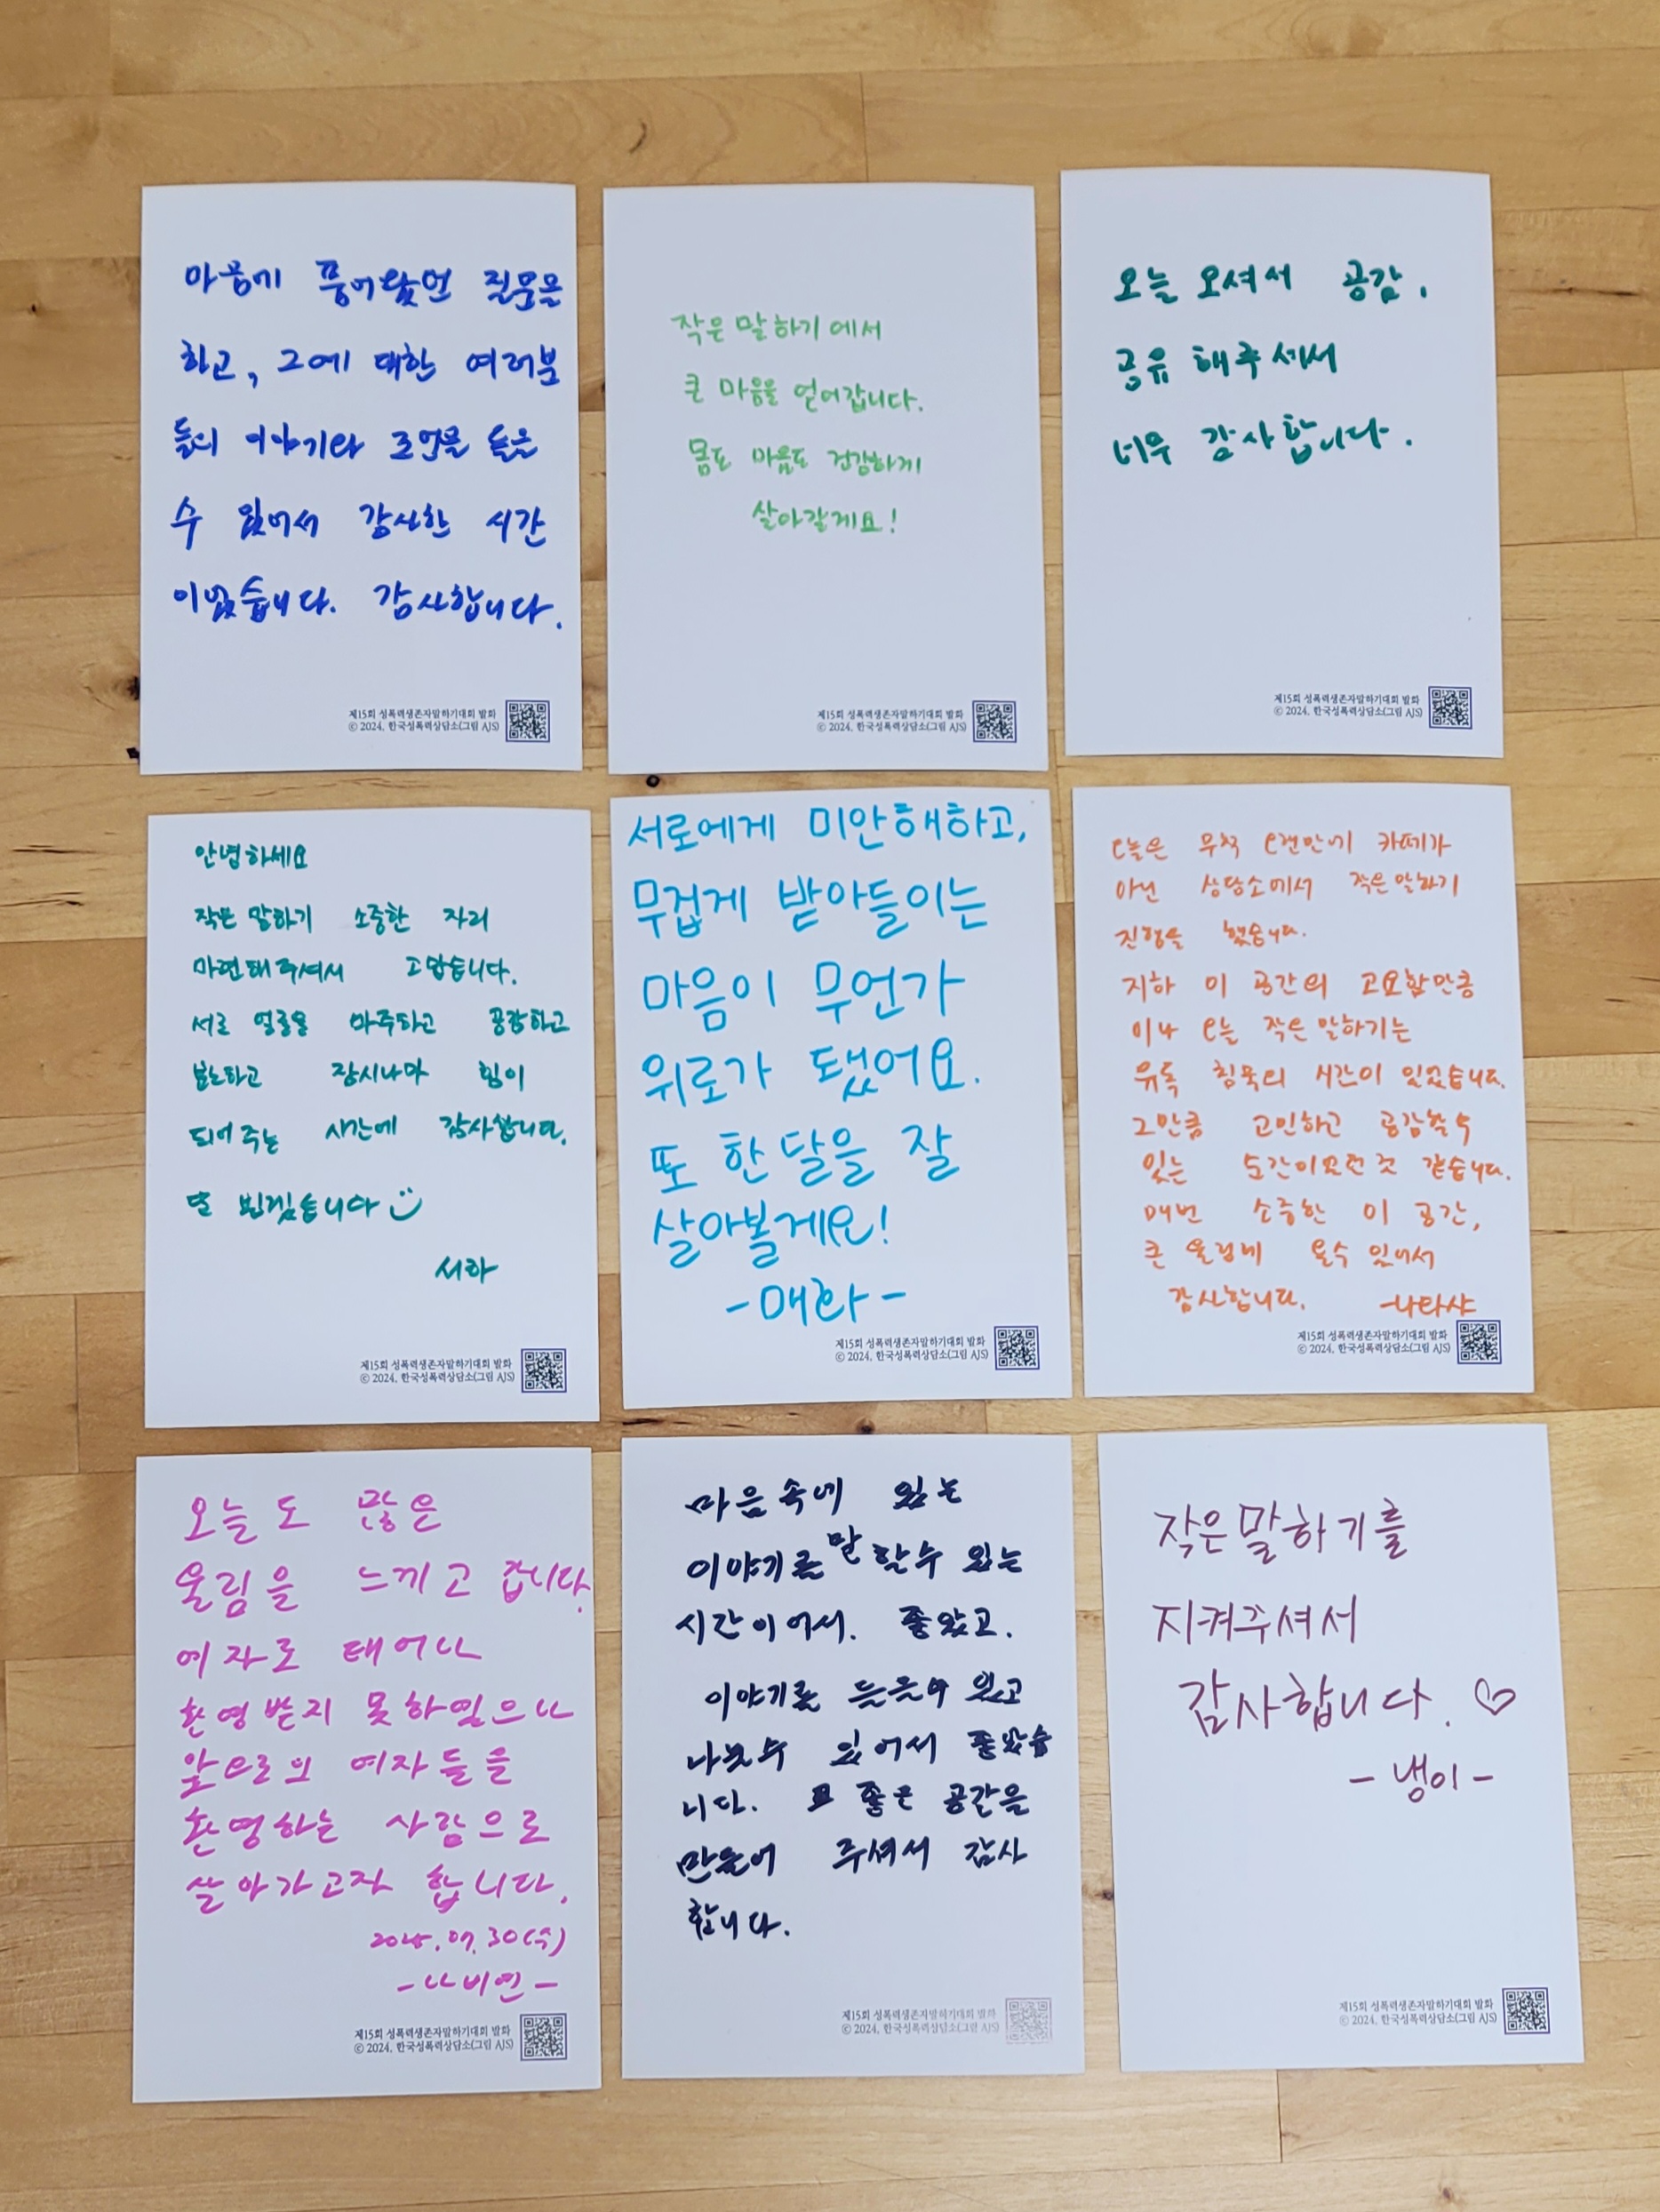 마음에 품어왔던 질문을
하고, 그에 대한 여러분
들의 이야기와 조언을 들을
수 있어서 감사한 시간
이었습니다. 감사합니다.
제15회 성폭력생존자말하기대회 발화
© 2024. 한국성폭력상담소(그림 AJS)
작은 말하기에서
큰 마음을 얻어갑니다.
몸도 마음도 건강하게
살아갈게요!
제15회 성폭력생존자말하기대회 발화
© 2024. 한국성폭력상담소(그림 AJS)
오늘 오셔서 공감,
공유 해주셔서
너무 감사합니다.
제15회 성폭력생존자말하기대회 발화
© 2024. 한국성폭력상담소(그림 AJS)
안녕하세요
작은 말하기 소중한 자리
마련해주셔서 고맙습니다.
서로 얼굴을 마주하고 공감하고
분노하고 잠시나마 힘이
되어주는 시간에 감사합니다.
또 뵙겠습니다
서하
제15회 성폭력생존자말하기대회 발화
© 2024. 한국성폭력상담소(그림 AJS)
서로에게 미안해하고,
무겁게 받아들이는
마음이 무언가
위로가 됐어요.
또 한달을 잘
살아볼게요!
-매화-
제15회 성폭력생존자말하기대회 발화
© 2024. 한국성폭력상담소(그림 AJS)
오늘은 무척 오랜만에 카페가
아닌 상담소에서 작은말하기
진행을 했습니다.
지하 이 공간의 고요함만큼
이나 오늘 작은말하기는
유독 침묵의 시간이 있었습니다.
그만큼 고민하고 공감할수
있는 순간이었던것 같습니다.
매번 소중한 이 공간,
큰 울림에 올수 있어서
감사합니다. -나타샤
제15회 성폭력생존자말하기대회 발화
© 2024. 한국성폭력상담소(그림 AJS)
오늘도 많은
울림을 느끼고 갑니다.
여자로 태어나
환영받지 못하였으나
앞으로의 여자들을
환영하는 사람으로
살아가고자 합니다.
2025.07.30(수)
-나비연-
제15회 성폭력생존자말하기대회 발화
© 2024. 한국성폭력상담소(그림 AJS)
마음속에 있는
이야기를 말 할수 있는
시간이어서. 좋았고.
이야기를 들을수 있고
나눌수 있어서 좋았습
니다. 좋은 공간을
만들어 주셔서 감사
합니다.
제15회 성폭력생존자말하기대회 발화
© 2024. 한국성폭력상담소(그림 AJS)
작은말하기를
지켜주셔서
감사합니다. ♡
-냉이-
제15회 성폭력생존자말하기대회 발화
© 2024. 한국성폭력상담소(그림 AJS)